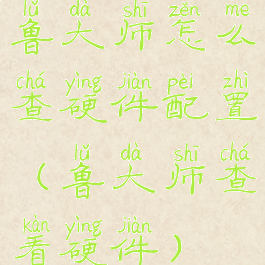 lǔ dà shī zěn me
鲁大师怎么
chá yìng jiàn pèi zhì
查硬件配置
lǔ dà shī chá
(鲁大师查
kàn yìng jiàn
看硬件)